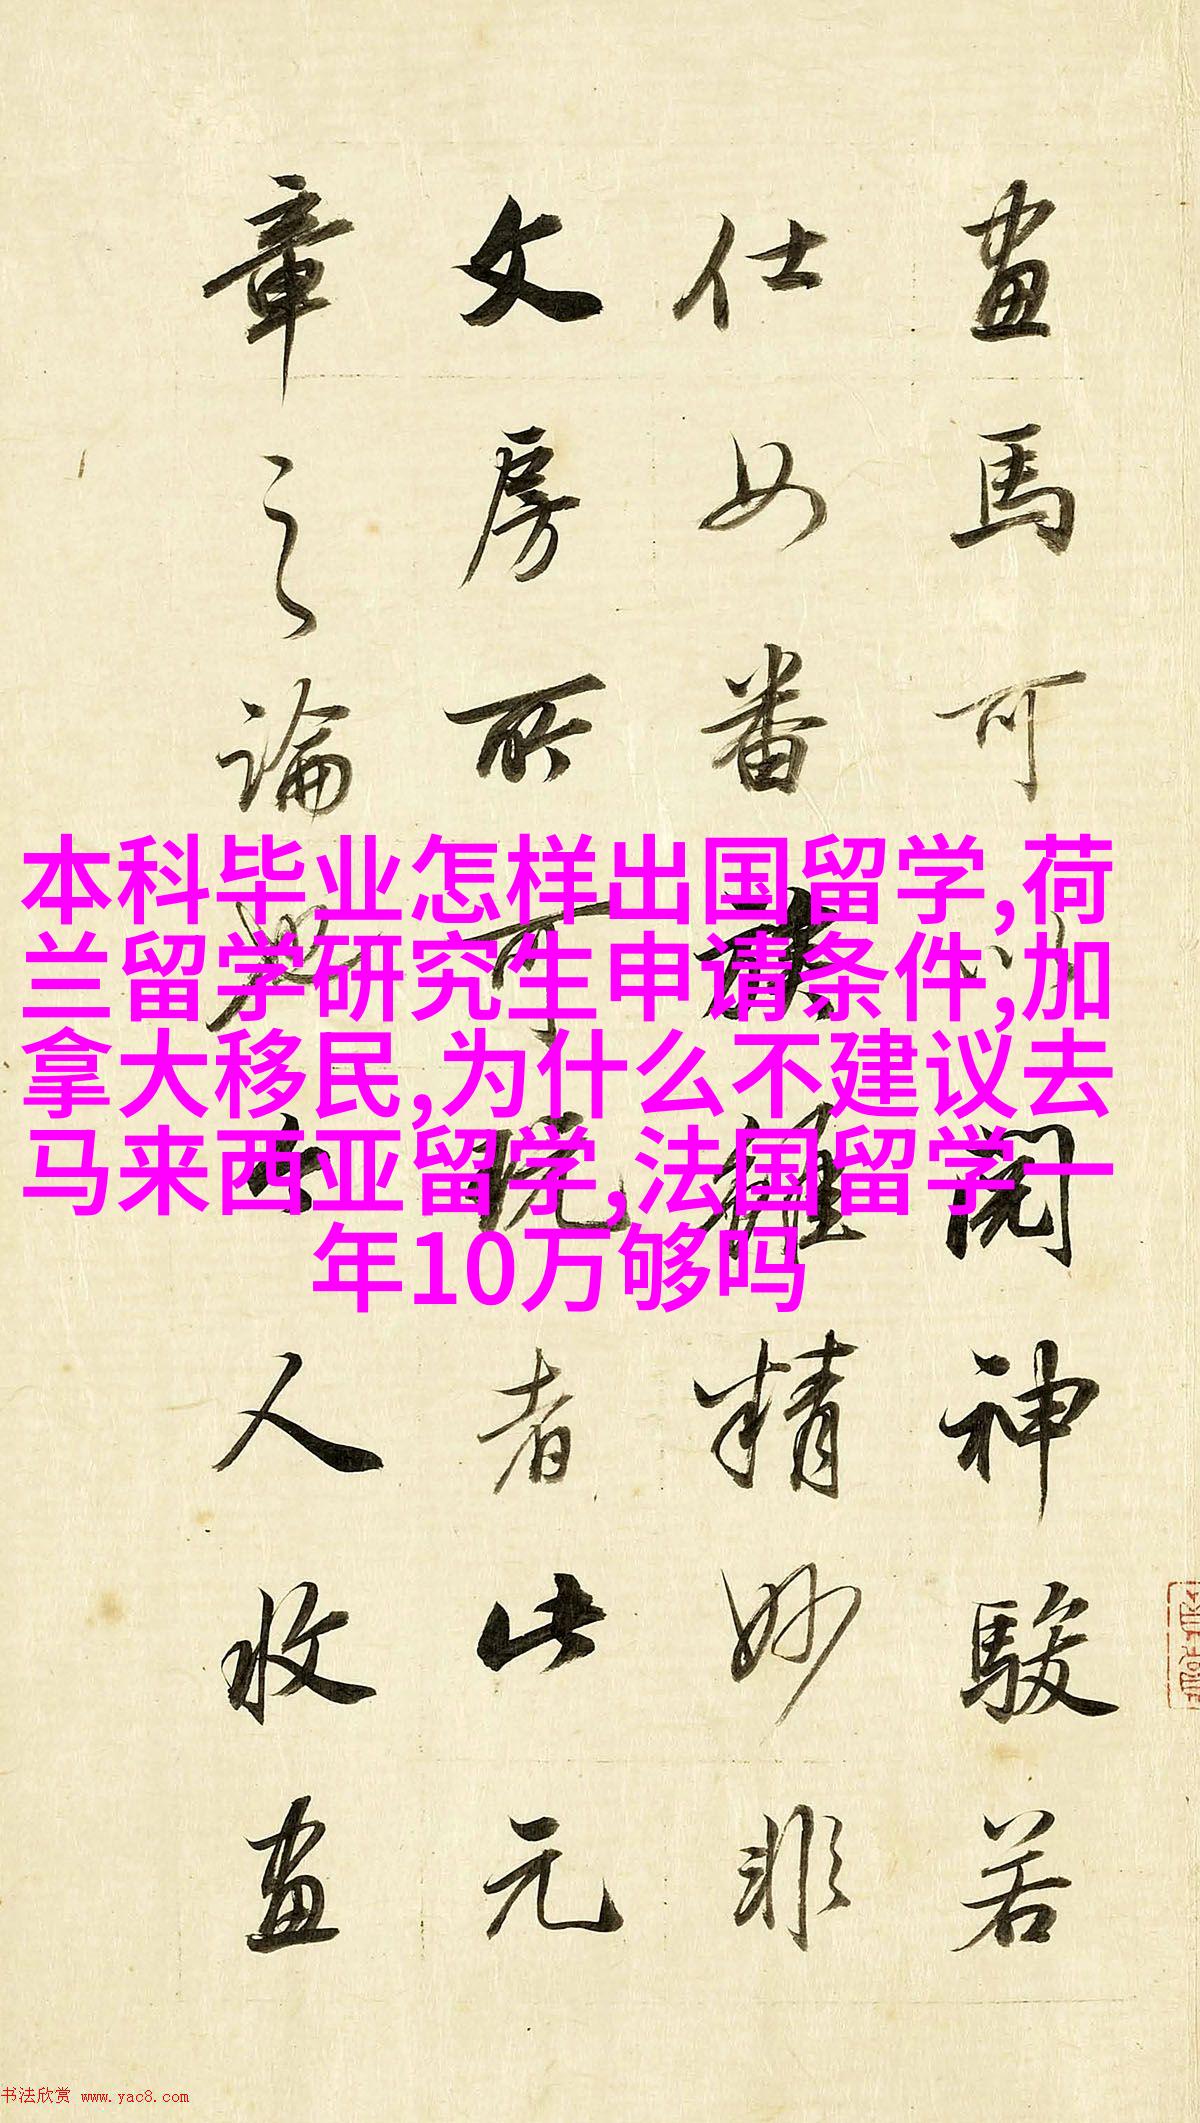 畫馬可以閱神駿若
仕女番族雖精妙非
文房所可玩者此元
章之論人收畫
本科毕业怎样出国留学,荷
兰留学研究生申请条件,加
拿大移民,为什么不建议去
马来西亚留学,法国留学一
年10万够吗
书法欣赏 www.yac8.com